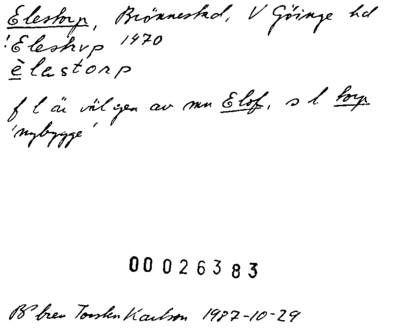 Elestorp, Brönnestad, V Göinge hd
! Elestrvp 1470
è̱lastorp
f l är väl gen av mn Elof, s l torp
'nybygge'
00026383
brev Torsten Karlson 1987-10-29